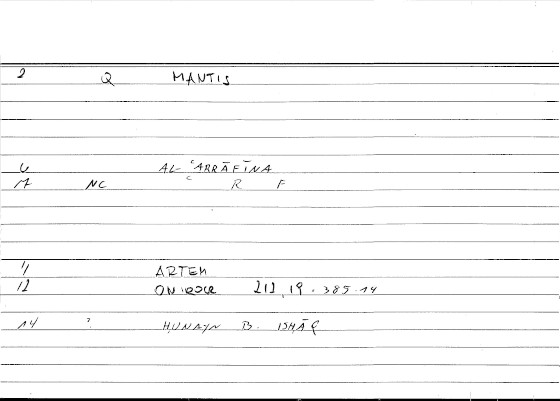 2 Q MANTIS
6 AL-ʿARRĀFĪNA
17 NC ʿ R F
11 ARTEM
12 ONIROCR 212,19 - 385.14
14 ? ḤUNAYN B. ISḤĀQ